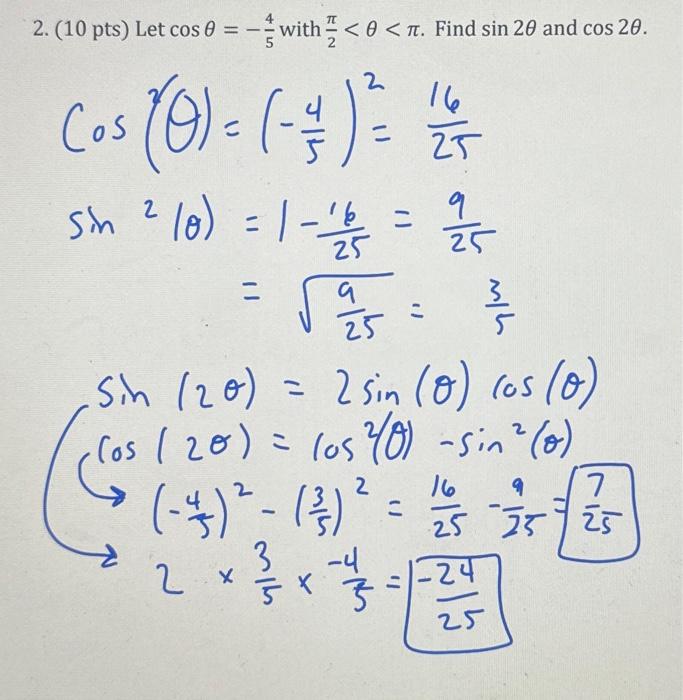 2. (10 pts) Let cos θ = −4/5 with π/2 < θ < π. Find sin 2θ and cos 2θ.
Cos²(θ) = (-4/5)² = 16/25
sin²(θ) = 1 - 16/25 = 9/25
= √(9/25) = 3/5
sin (2θ) = 2 sin(θ) cos(θ)
Cos (2θ) = cos²(θ) - sin²(θ)
(-4/5)² - (3/5)² = 16/25 - 9/25 = 7/25
2 × 3/5 × -4/5 = -24/25